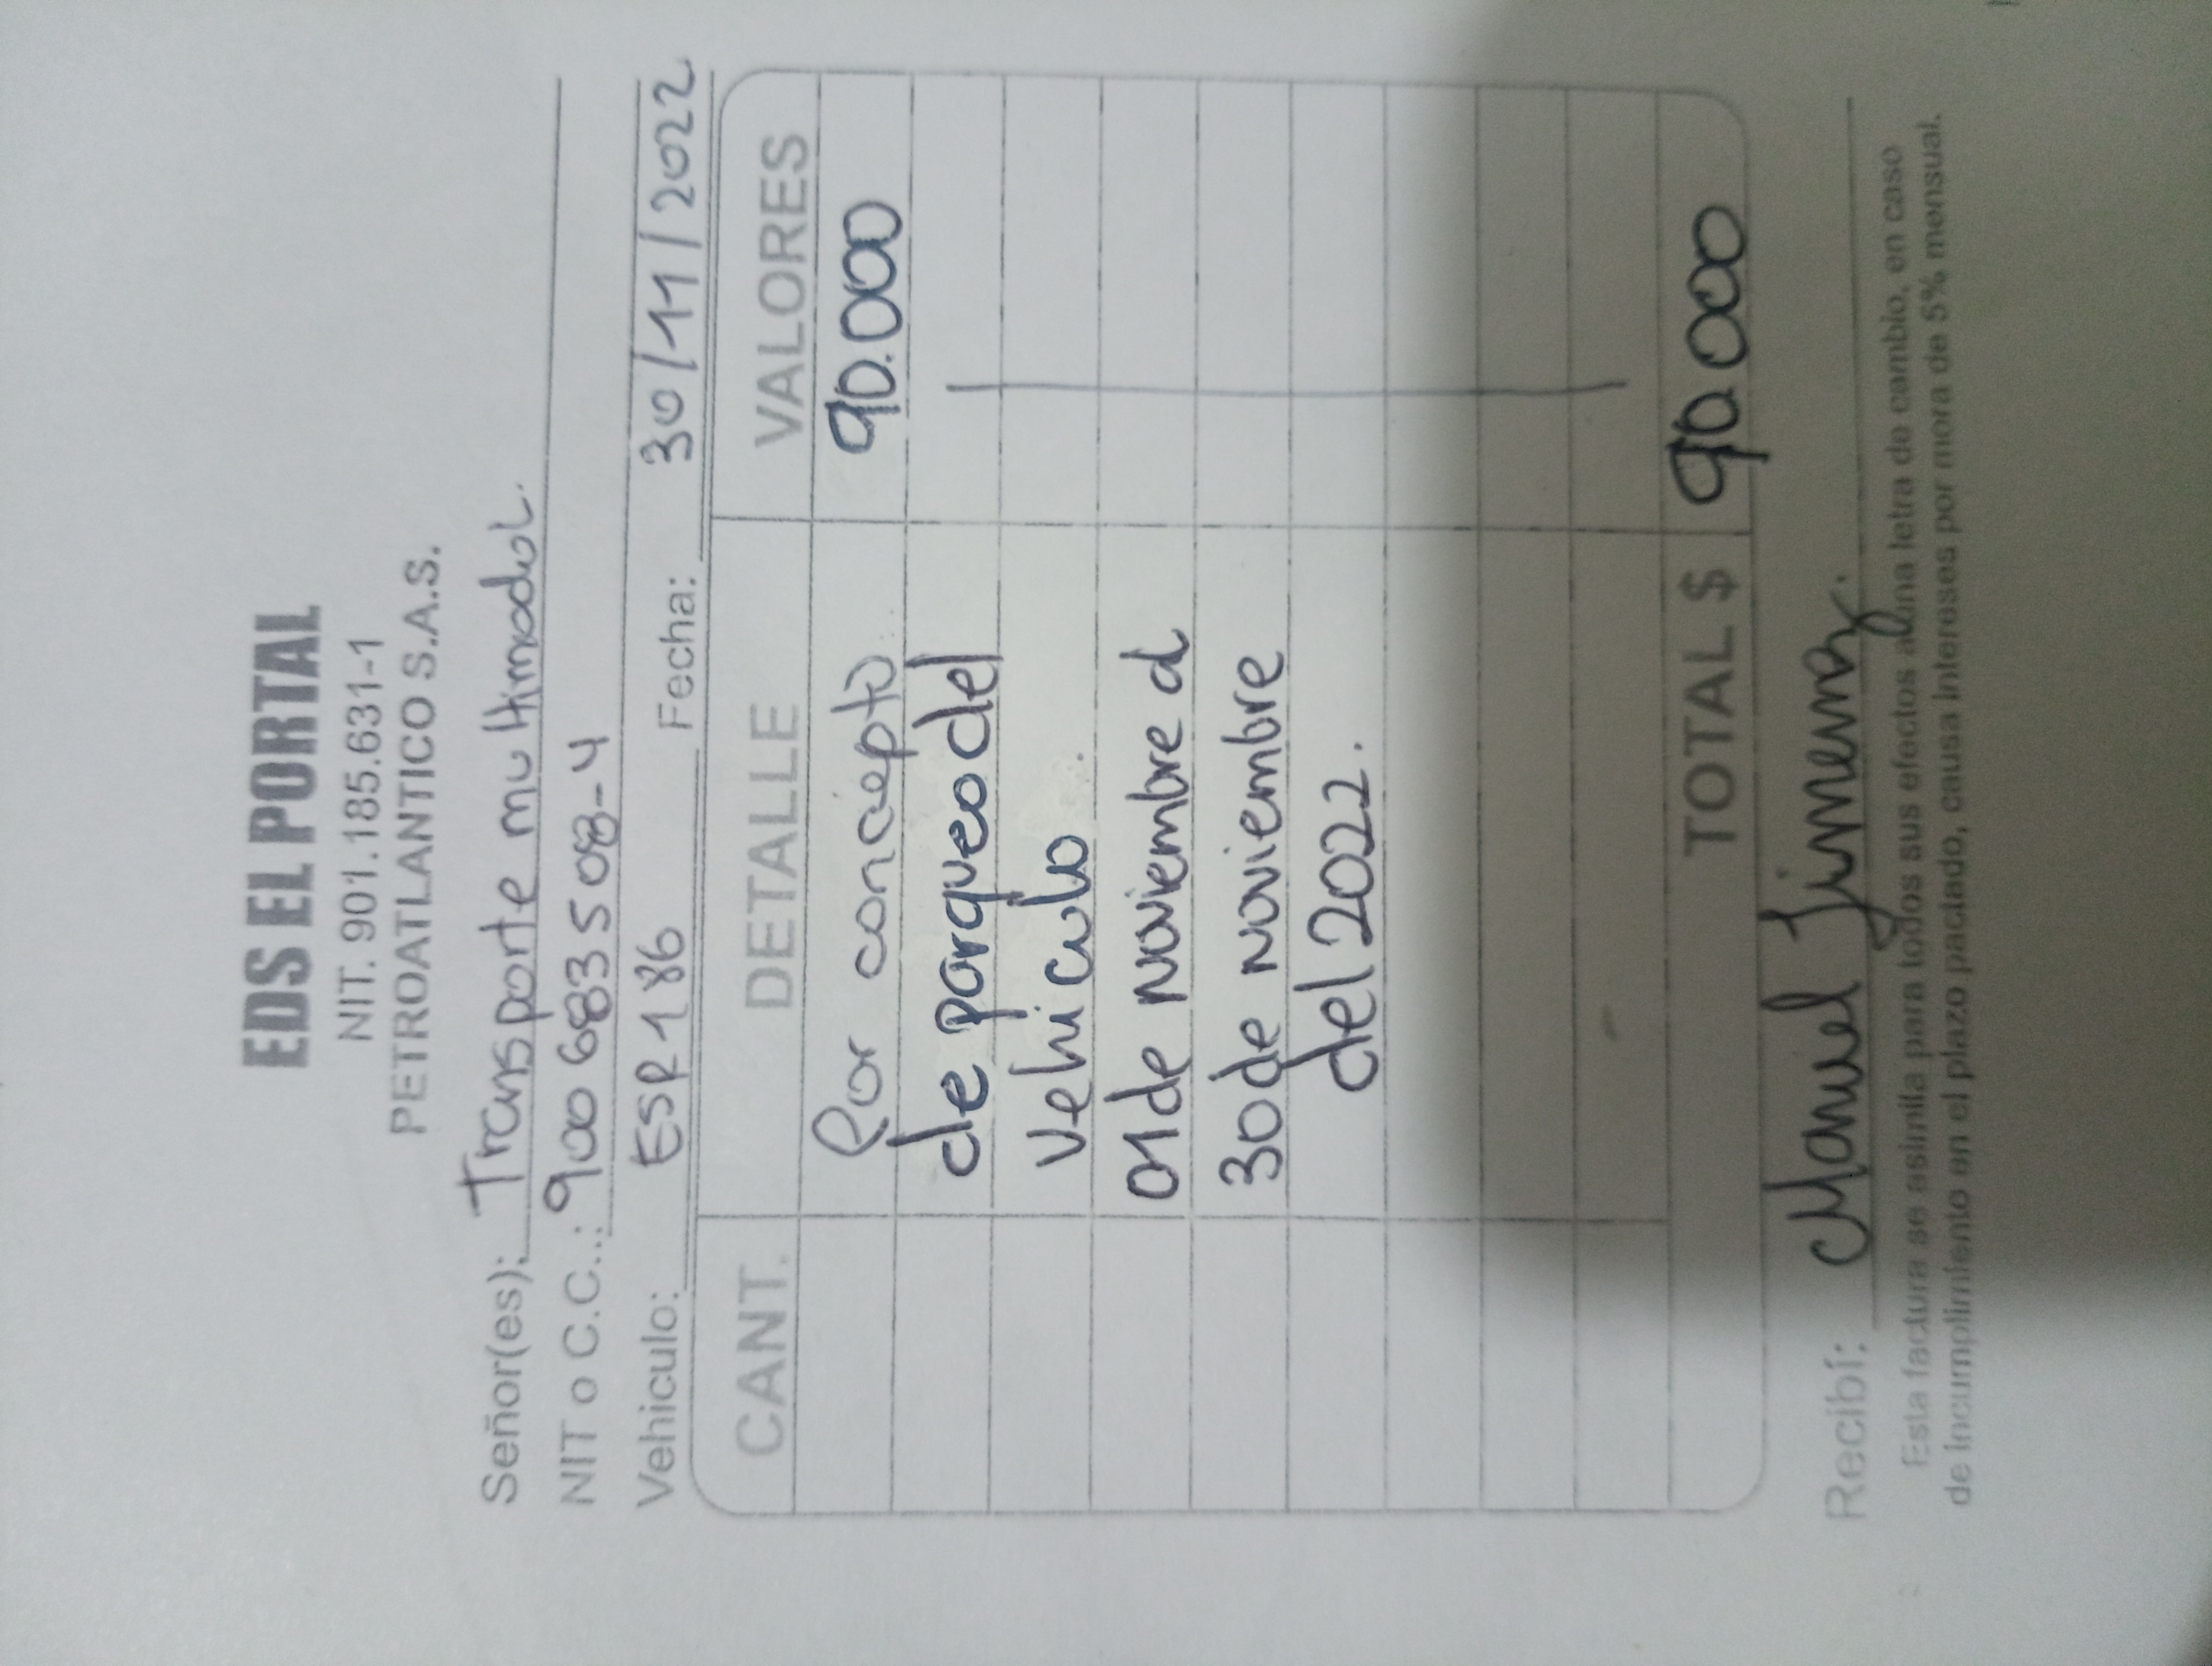 EDS EL PORTAL
NIT. 901.185.631-1
PETROATLANTICO S.A.S.
Señor(es): Transporte multimodal.
NIT o C.C..: 900683508-4
Vehiculo: ESR186 Fecha: 30/11/2022
CANT. DETALLE VALORES
Por concepto 90.000
de parqueo del
Vehiculo
01 de noviembre al
30 de noviembre
del 2022.
TOTAL $ 90.000
Recibí: Manuel Jimenez.
Esta factura se asimila para todos sus efectos a una letra de cambio, en caso
de incumplimiento en el plazo pactado, causa intereses por mora de 5% mensual.